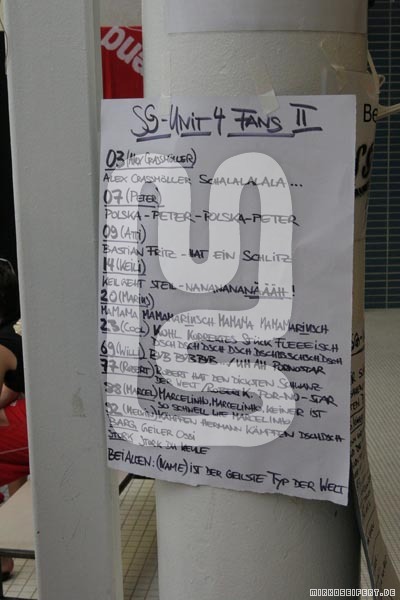 SG-UNIT 4 FANS II
03 (ALEX CRASSMÖLLER)
ALEX CRASSMÖLLER SCHALALALALA ...
07 (PETER)
POLSKA-PETER-POLSKA-PETER
09 (ATTI)
BASTIAN FRITZ - HAT EIN SCHLITZ
14 (KEILI)
KEIL GEHT STEIL-NANANANANÄÄÄH!
20 (MARIN)
MAMAMA MAMAMARINSCH MAMAMA MAMAMARINSCH
23 (COOL) KOHL KORREKTES STÜCK FLEEEISCH
DSCH DSCH DSCH DSCH DSCHDSCHSCHDSCH
69 (WILLI) BVB BVBBVB UH AH PORNOSTAR
77 (ROBERT) ROBERT HAT DEN DICKSTEN SCHWANZ
DER WELT / ROBERT K. POR-NO-STAR
88 (MARCEL) MARCELINHO, MARCELINHO, KEINER IST
SO SCHNELL WIE MARCELINHO
(MELVIN) KÄMPFEN HERMANN KÄMPFEN DSCHDSCH
GEILER OSSI
STORK STORK DU KEULE
BEI ALLEN: (NAME) IST DER GEILSTE TYP DER WELT
BE
MIRKOSEIFERT.DE